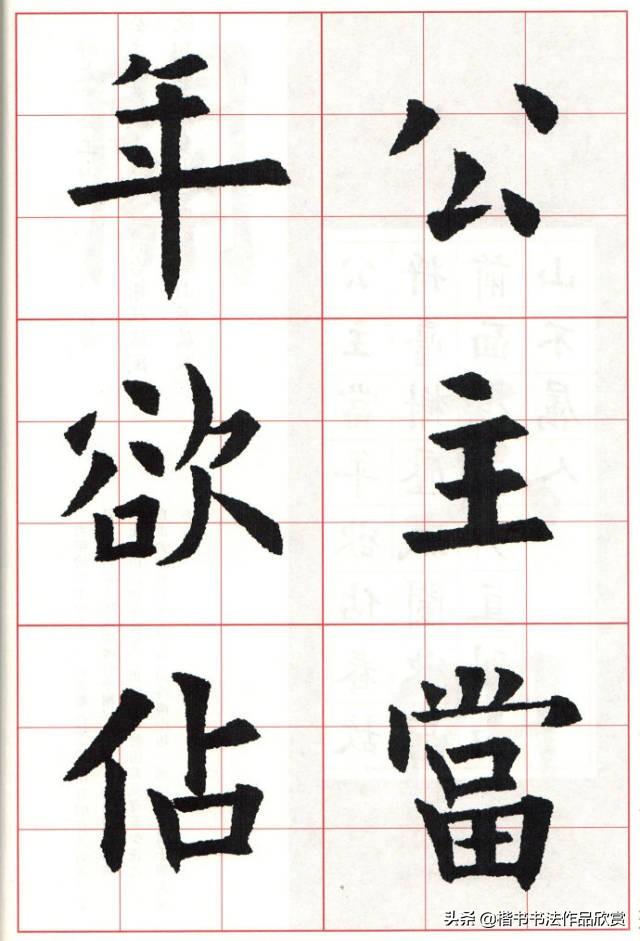 公主當
年欲佔
头条 @楷书书法作品欣赏